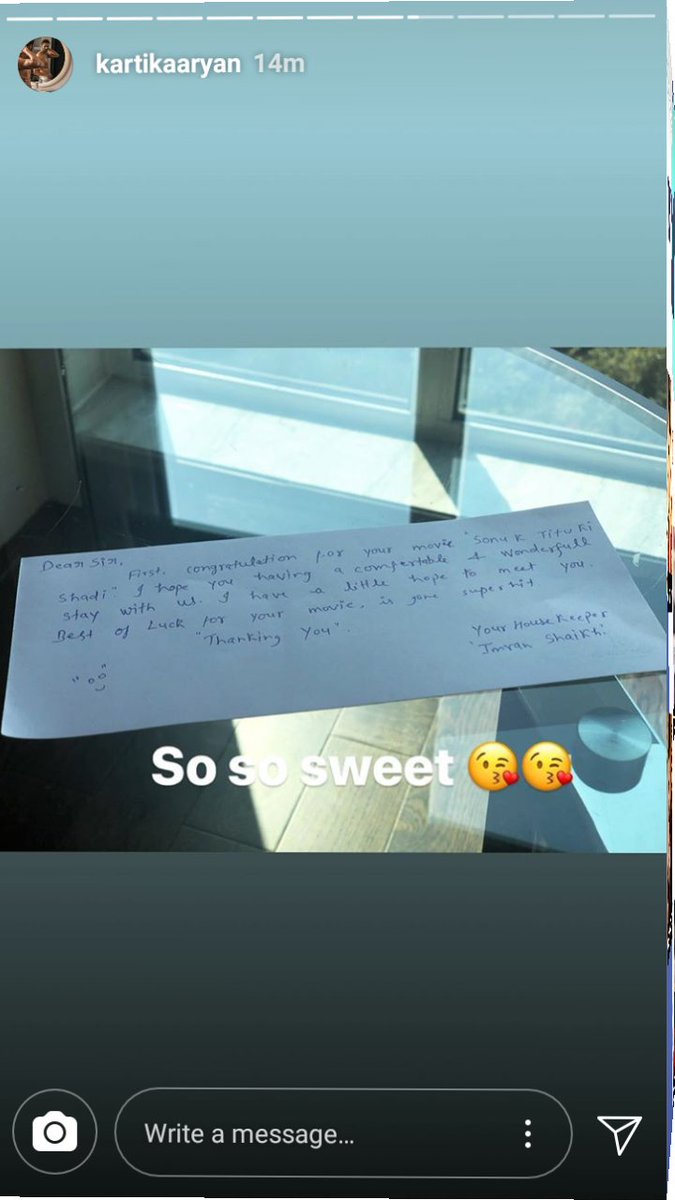 kartikaaryan 14m
Dear Sir,
First, congratulation for your movie "Sonu K Titu Ki
Shadi". I hope you having a comfertable & wonderfull
stay with us. I have a little hope to meet you.
Best of Luck for your movie. is gone superhit
"Thanking You".
Your House Keeper
"Imran Shaikh"
So so sweet 😘😘
Write a message...